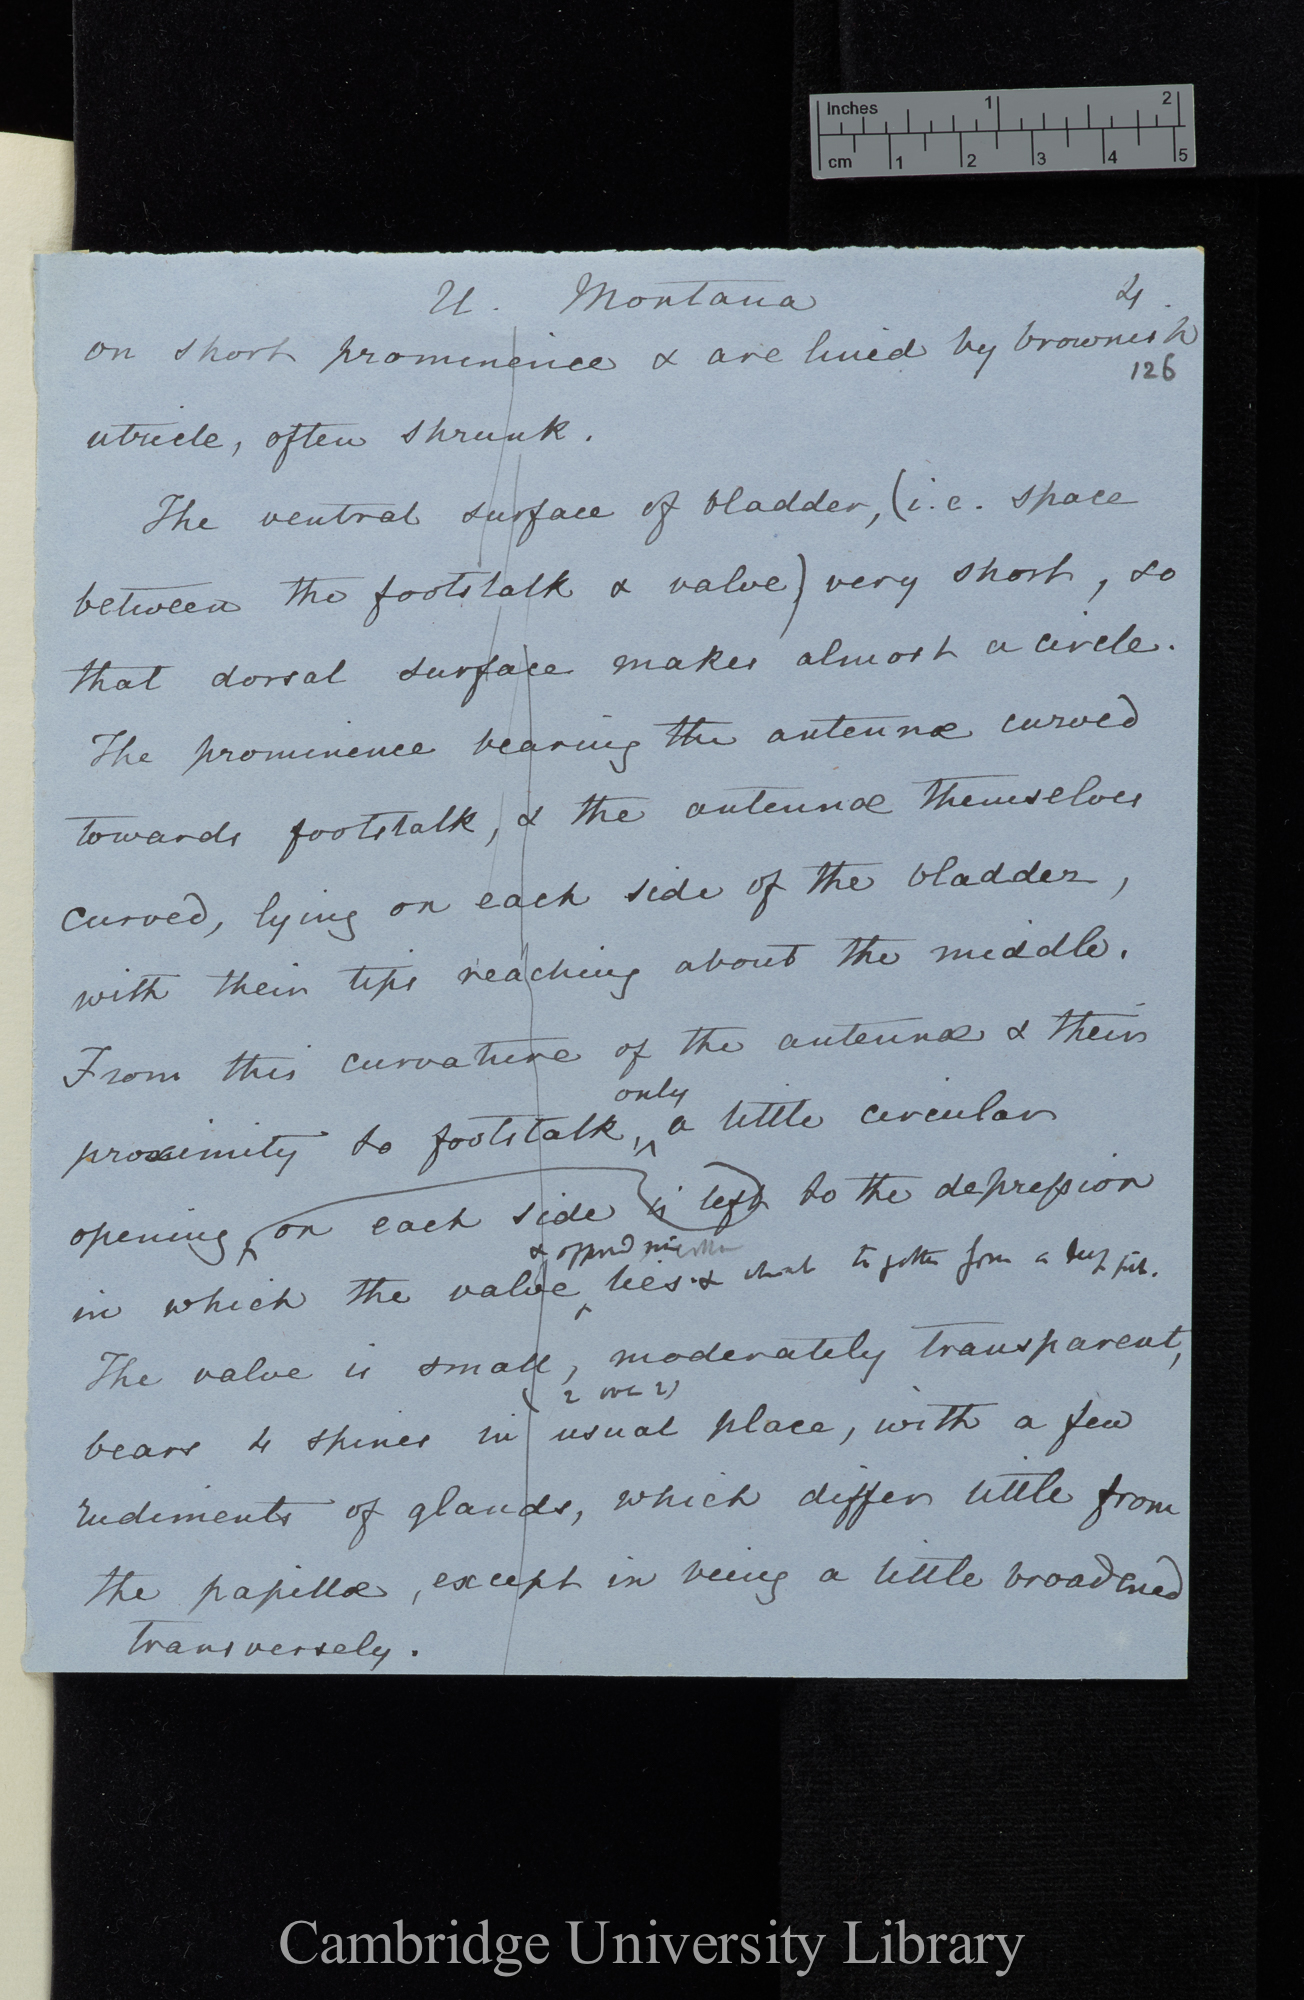 Inches 1 2
cm 1 2 3 4 5
U. Montana 4.
on short prominence & are lined by brownish
126
utricle, often shrunk.
The ventral surface of bladder, (i.e. space
between the footstalk & valve) very short, so
that dorsal surface makes almost a circle.
The prominence bearing the antennæ curved
towards footstalk, & the antennæ themselves
curved, lying on each side of the bladder,
with their tips reaching about the middle.
From this curvature of the antennæ & their
only
proximity to footstalk, a little circular
opening, on each side is left to the depression
&
in which the valve lies. & together form a deep pit.
The valve is small, moderately transparent,
(2 over 2)
bears 4 spines in usual place, with a few
rudiments of glands, which differ little from
the papillæ, except in being a little broadened
transversely.
Cambridge University Library